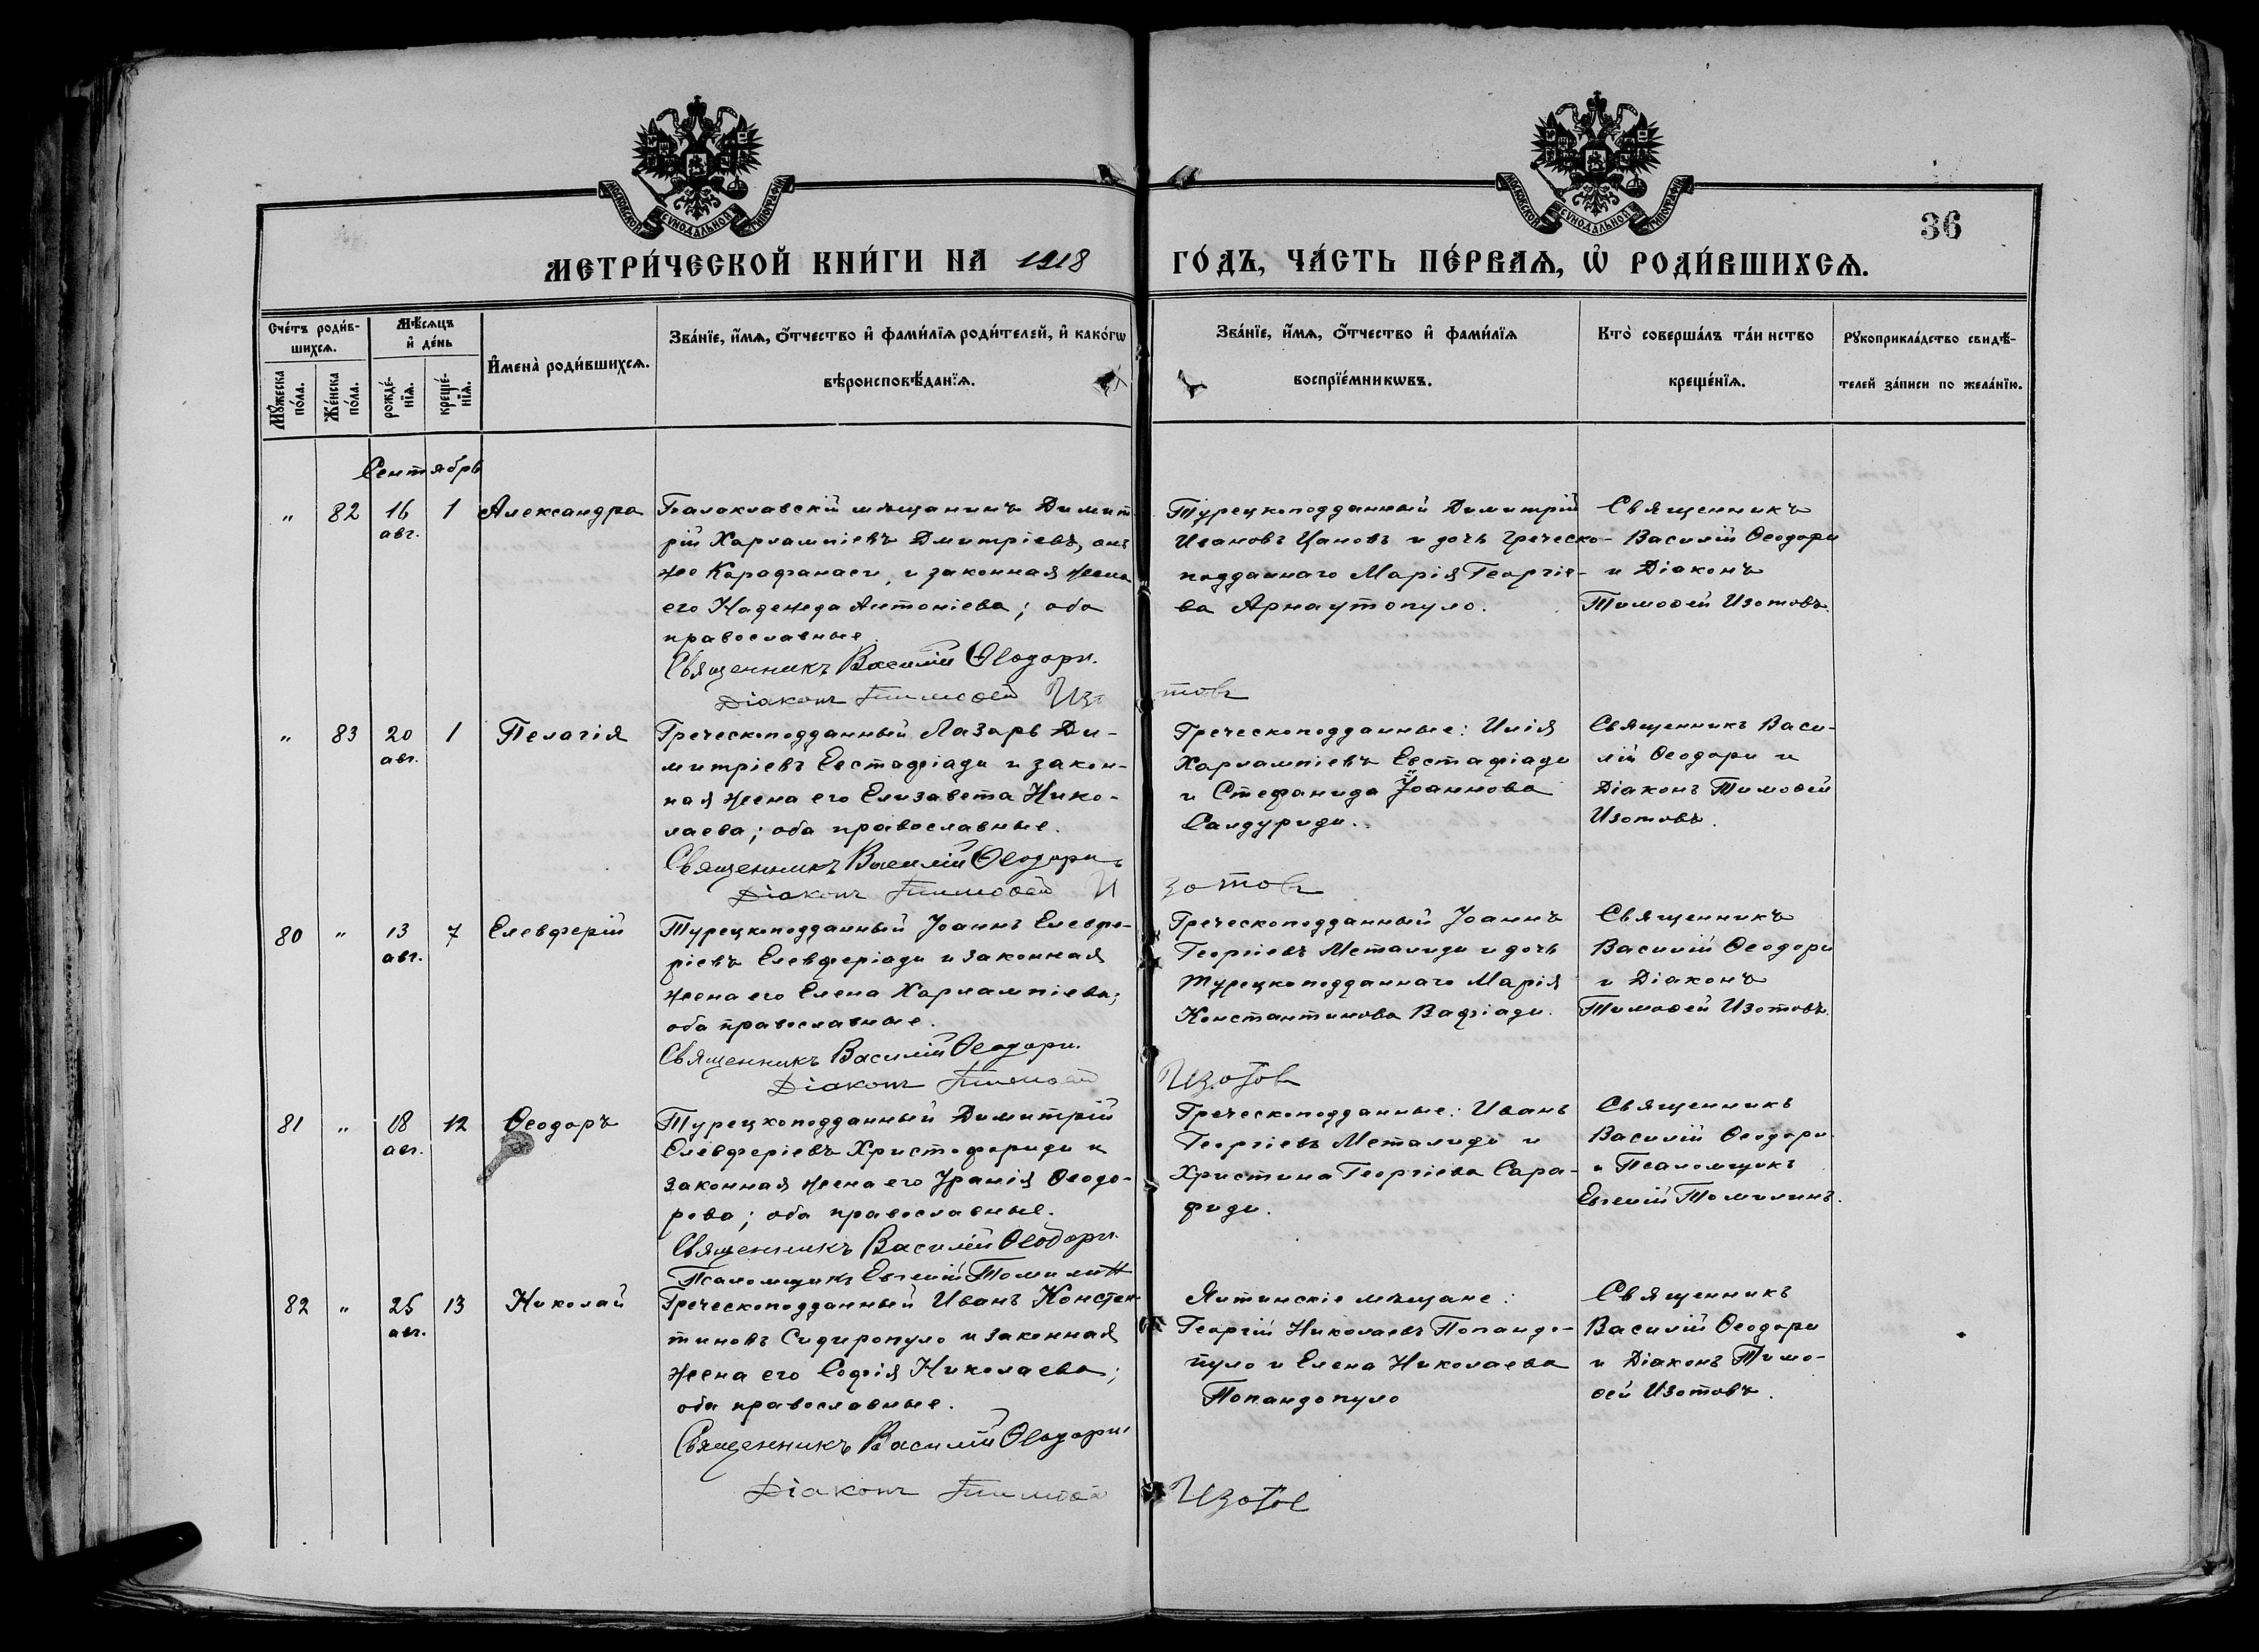 МОСКОВСКОЙ СѴНОДАЛЬНОЙ ТИПОГРАФІИ
МОСКОВСКОЙ СѴНОДАЛЬНОЙ ТИПОГРАФІИ
36
МЕТРИ́ЧЕСКОЙ КНИ́ГИ НА 1918 ГО́ДЪ, ЧА́СТЬ ПЕ́РВАѦ, Ѡ҆ РОДИ́ВШИХСѦ.
Сче́тъ роди́в-
шихсѧ.
Мѣ́сѧцъ
и҆ де́нь
Мꙋ́жеска
по́ла.
Же́нска
по́ла.
рожде́-
нїѧ.
креще́-
нїѧ.
И҆мена̀ роди́вшихсѧ.
Зва́нїе, и҆́мѧ, ѻ҆́тчество и҆ фами́лїѧ роди́телей, и҆ како́гѡ
вѣроисповѣ́данїѧ.
Зва́нїе, и҆́мѧ, ѻ҆́тчество и҆ фами́лїѧ
воспрїе́мникѡвъ.
Кто̀ соверша́лъ та́инство
креще́нїѧ.
Рꙋкоприкла́дство свидѣ́-
телей за́писи по жела́нїю.
Сентябрь
" 82 16 авг. 1 Александра
Балаклавскій мѣщанинъ Димит-
рій Харлампіевъ Дмитріевъ, онъ
же Карафанаси, и законная жена
его Надежда Антоніева; оба
православные.
Священникъ Василій Ѳеодори.
Діаконъ Тимоѳей Изотовъ
Турецкоподданный Димитрій
Ивановъ Цановъ и дочь греческо-
подданнаго Марія Георгіе-
ва Арнаутопуло.
Священникъ
Василій Ѳеодори
и Діаконъ
Тимоѳей Изотовъ.
" 83 20 авг. 1 Пелагія
Греческоподданный Лазарь Ди-
митріевъ Евстафіади и закон-
ная жена его Елизавета Нико-
лаева; оба православные.
Священникъ Василій Ѳеодори
Діаконъ Тимоѳей Изотовъ
Греческоподданные: Илія
Харлампіевъ Евстафіади
и Стефанида Іоаннова
Салдуриди.
Священникъ Васи-
лій Ѳеодори и
Діаконъ Тимоѳей
Изотовъ.
80 " 13 авг. 7 Елевферій
Турецкоподданный Іоаннъ Елевфе-
ріевъ Елевферіади и законная
жена его Елена Харлампіева;
оба православные.
Священникъ Василій Ѳеодори.
Діаконъ Тимоѳей Изотовъ
Греческоподданный Іоаннъ
Георгіевъ Металиди и дочь
турецкоподданнаго Марія
Константинова Вафіади.
Священникъ
Василій Ѳеодори
и Діаконъ
Тимоѳей Изотовъ.
81 " 18 авг. 12 Ѳеодоръ
Турецкоподданный Димитрій
Елевферіевъ Христофориди и
законная жена его Уранія Ѳеодо-
рова; оба православные.
Священникъ Василій Ѳеодори.
Псаломщикъ Евгеній Томилин
Греческоподданные: Иванъ
Георгіевъ Металиди и
Христина Георгіева Сара-
фиди.
Священникъ
Василій Ѳеодори
и Псаломщикъ
Евгеній Томилинъ.
82 " 25 авг. 13 Николай
Греческоподданный Иванъ Констан-
тиновъ Сидиропуло и законная
жена его Софія Николаева;
оба православные.
Священникъ Василій Ѳеодори
Діаконъ Тимоѳей Изотов
Ялтинскіе мѣщане:
Георгій Николаевъ Попандо-
пуло и Елена Николаева
Попандопуло
Священникъ
Василій Ѳеодори
и Діаконъ Тимо-
ѳей Изотовъ.